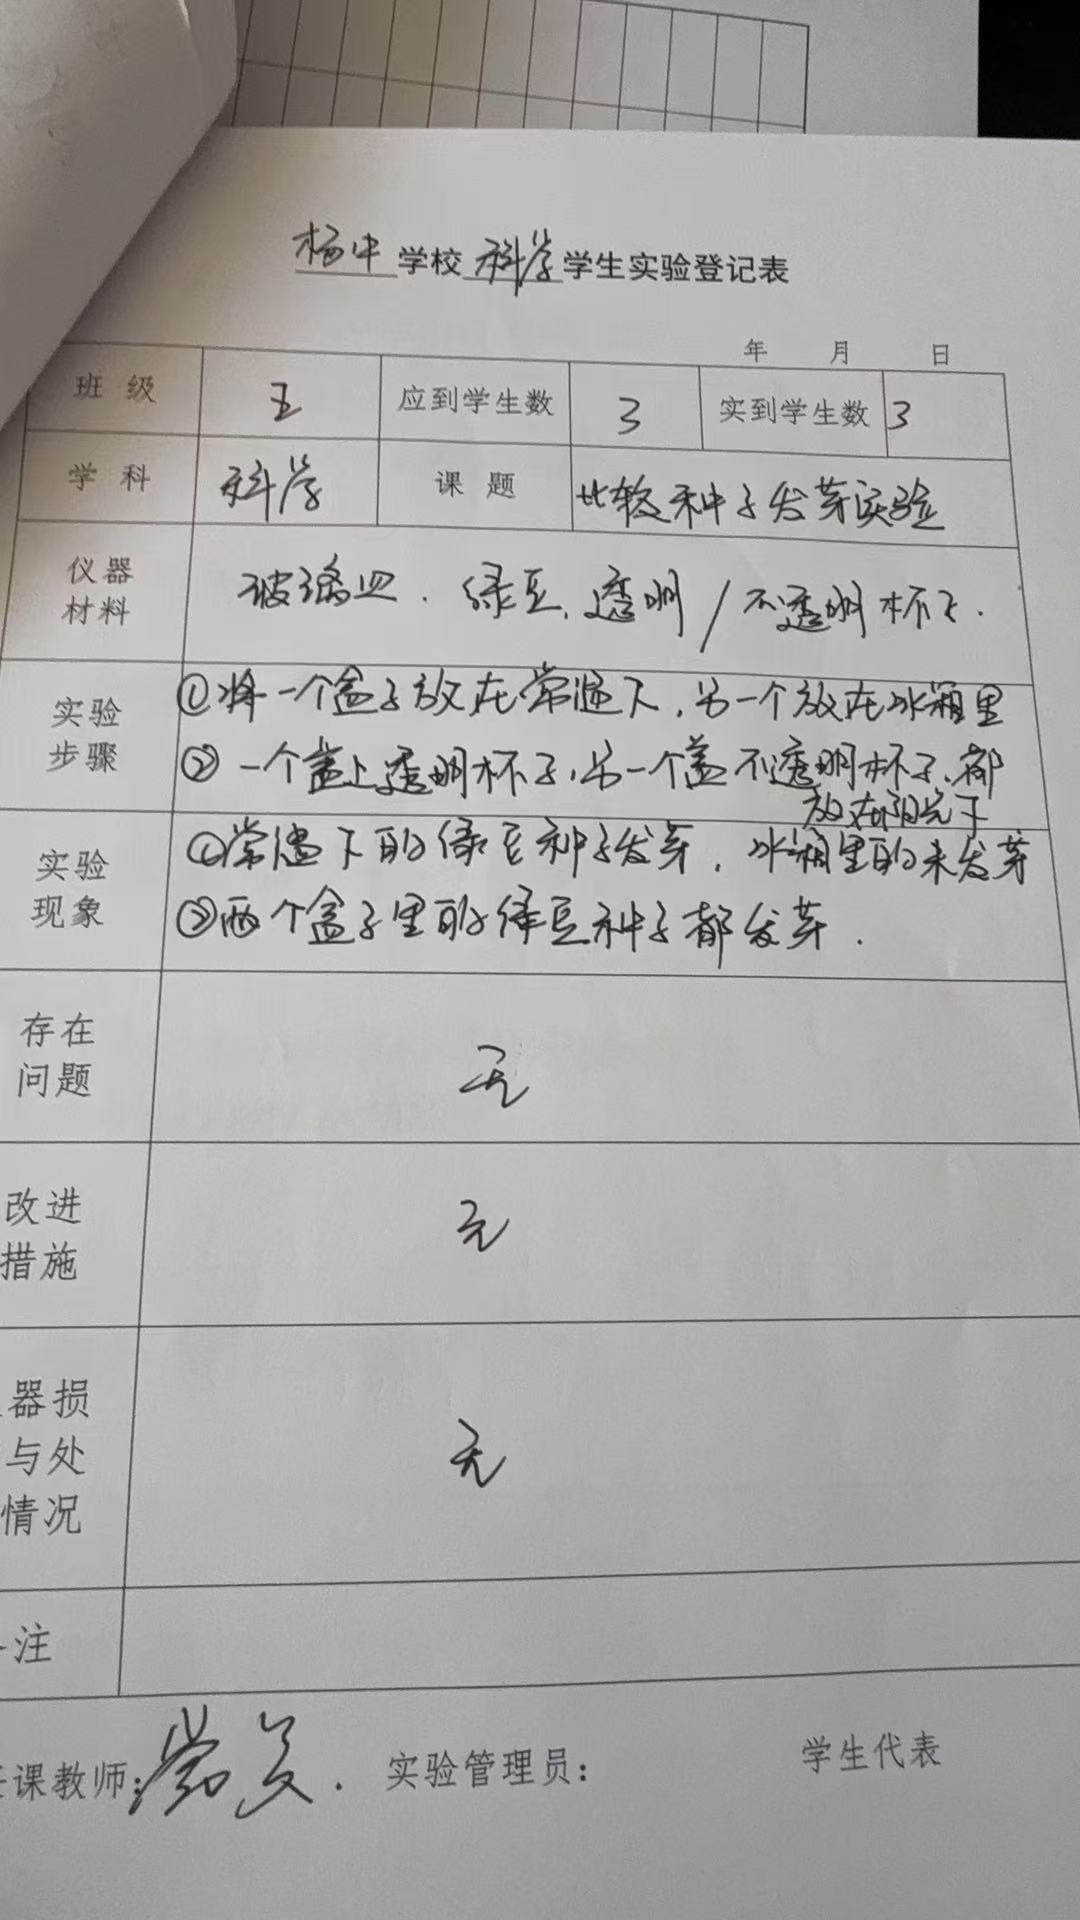 杨中学校科学学生实验登记表
年 月 日
班级 五 应到学生数 3 实到学生数 3
学科 科学 课题 比较种子发芽实验
仪器 玻璃皿.绿豆.透明/不透明杯子.
材料
实验 ①将一个盒子放在常温下,另一个放在冰箱里
步骤 ②一个盖上透明杯子,另一个盖不透明杯子,都
放在阳光下
实验 ①常温下的绿豆种子发芽,冰箱里的未发芽
现象 ②两个盒子里的绿豆种子都发芽.
存在
问题 无
改进
措施 无
器损
与处 无
情况
注
课教师: 实验管理员: 学生代表